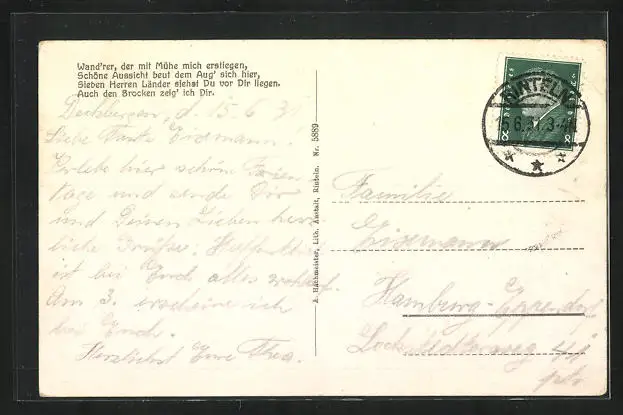 Wand'rer, der mit Mühe mich erstiegen,
Schöne Aussicht beut dem Aug' sich hier,
Sieben Herren Länder siehst Du vor Dir liegen.
Auch den Brocken zeig' ich Dir.
Deckbergen, d. 15.6.31
Liebe Tante
Erlebe hier schöne Ferien
tage und sende Dir
und Deinen Lieben herz
liche Grüsse.
ist bei Euch alles wohlauf.
Am 3. erscheine ich
bei Euch.
Herzlichst Eure Thea.
A. Hachmeister, Lith. Anstalt, Rinteln. Nr. 5889
RINTELN
15.6.31. 3-4
8 8
Familie
Hamburg-Eppendorf